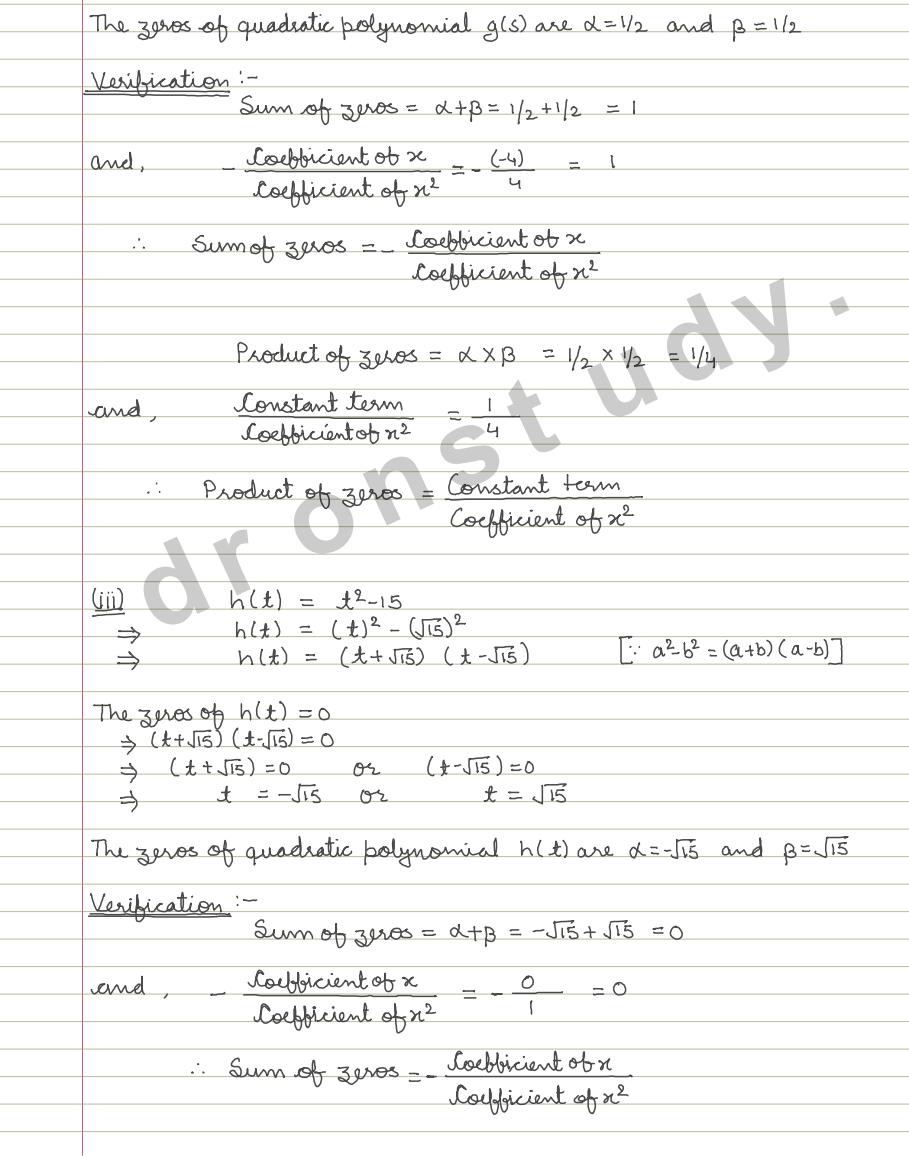 The zeros of quadratic polynomial g(s) are α=1/2 and β=1/2
Verification :-
Sum of zeros = α+β = 1/2+1/2 = 1
and, - Coefficient of x / Coefficient of x² = - (-4)/4 = 1
∴ Sum of zeros = - Coefficient of x / Coefficient of x²
Product of zeros = α×β = 1/2 × 1/2 = 1/4
and, Constant term / Coefficient of x² = 1/4
∴ Product of zeros = Constant term / Coefficient of x²
dronstudy.
(iii) h(t) = t²-15
⇒ h(t) = (t)² - (√15)²
⇒ h(t) = (t+√15) (t-√15) [∵ a²-b² = (a+b) (a-b)]
The zeros of h(t) = 0
⇒ (t+√15) (t-√15) = 0
⇒ (t+√15) = 0 or (t-√15) = 0
⇒ t = -√15 or t = √15
The zeros of quadratic polynomial h(t) are α=-√15 and β=√15
Verification :-
Sum of zeros = α+β = -√15+√15 = 0
and, - Coefficient of x / Coefficient of x² = - 0/1 = 0
∴ Sum of zeros = - Coefficient of x / Coefficient of x²